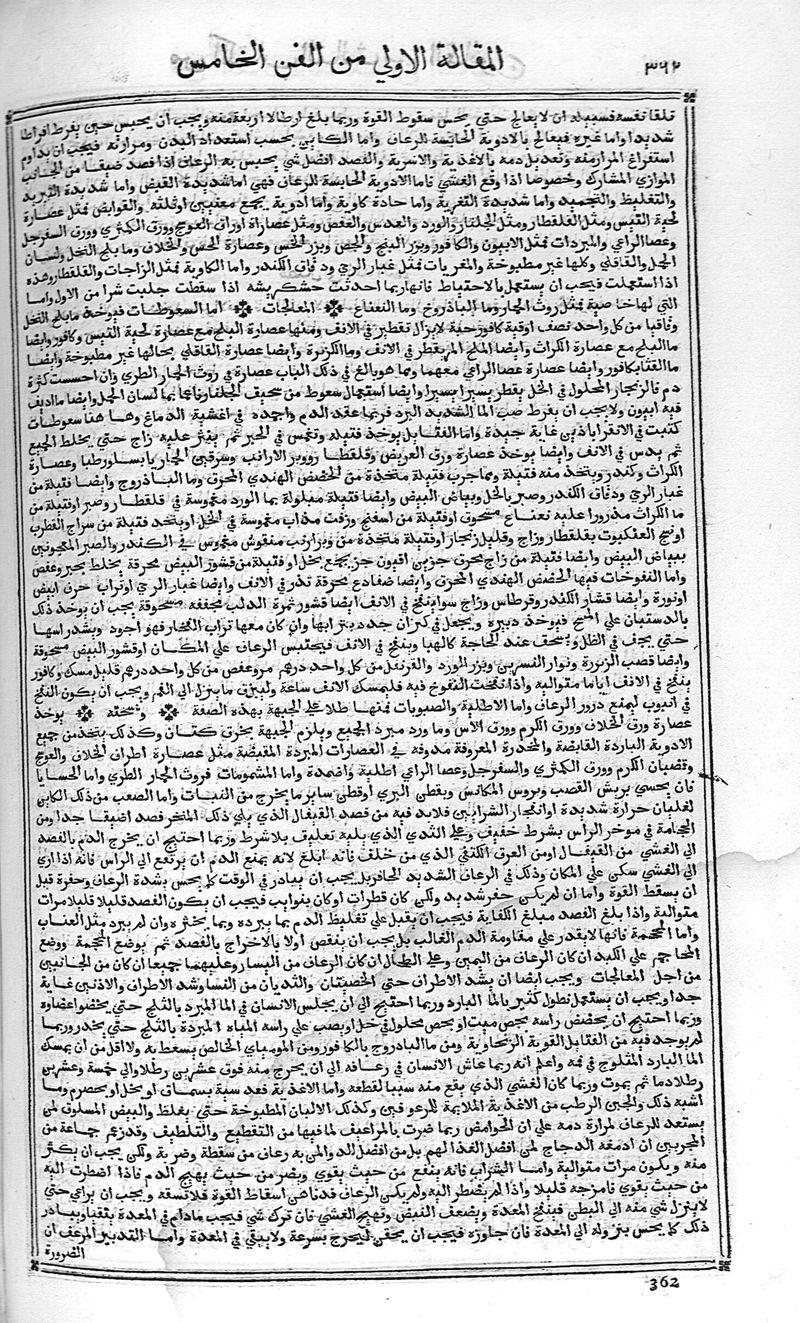 ٣٦٢ المقالة الاولي من الفن الخامس
تلقا نفسه فسبيله ان لا يعالج حتي يحس سقوط القوة وربما بلغ ارطالا اربعة منه ويجب ان يحبس حين يفرط افراطا
شديدا واما غيره فيعالج بالادوية الحابسة للرعاف واما الكاين بحسب استعداد البدن ومرارته فيجب ان يداوم
استفراغ المرار منه وتعديل دمه بالاغذية والاشربة والفصد افضل شي يحبس به الرعاف اذا فصد ضيقا من الجانب
الموازي المشارك وخصوصا اذا وقع الغشي فاما الادوية الحابسة للرعاف فهي اما شديدة القبض واما شديدة التبريد
والتغليظ والتجميد واما شديدة التغرية واما حادة كاوية واما ادوية يجمع معنيين او ثلثة والقوابض مثل عصارة
لحية التيس ومثل القلقطار ومثل الجلنار والورد والعدس والعفص ومثل عصارة اوراق العوسج وورق الكمثري وورق السفرجل
وعصا الراعي والمبردات فمثل الافيون والكافور وبزر البنج والجص وبزر الخس وعصارة الخس والخلاف وما بلح النخل ولسان
الحمل والقاقلي وكلها غير مطبوخة والمغريات فمثل غبار الرحي ودقاق الكندر واما الكاوية فمثل الزاجات والقلقطار وهذه
اذا استعملت فيجب ان يستعمل بالاحتياط فانها ربما احدثت خشكريشة اذا سقطت جلبت شرا من الاول واما
التي لها خاصية فمثل روث الحمار وما الباذروج وما النعناع المعالجات اما السعوطات فيوخذ ما بلح النخل
ما البلح مع عصارة الكراث وايضا الملح المر يقطر في الانف وما الكزبرة وايضا عصارة القاقلي بحالها غير مطبوخة وايضا
ما القثا بكافور وايضا عصارة عصا الراعي معهما ومما هو بالغ في ذلك الباب عصارة في روث الحمار الطري وان احسست كثرة
فيه افيون ولا يجب ان يفرط صب الما الشديد البرد فربما عقد الدم واجمده في اغشية الدماغ وها هنا سعوطات
كتبت في الاقراباذين غاية جيدة واما الفتايل يوخذ فتيلة وتغمس في الحبر ثم ينثر عليه زاج حتي يختلط الجميع
الكراث وكندر ويتخذ منه فتيلة ومما جرب فتيلة متخذة من الحضض الهندي المحرق وما الباذروج وايضا فتيلة من
غبار الرحي ودقاق الكندر وصبر بالخل وبياض البيض وايضا فتيلة مبلولة بما الورد مغموسة في قلقطار وصبر او فتيلة من
ما الكراث مذرورا عليه نعناع مسحوق او فتيلة من اسفنج وزفت مذاب مغموسة في الخل او يتخذ فتيلة من سراج القطرب
او نسج العنكبوت بقلقطار وزاج وقليل زنجار او فتيلة متخذة من وبر ارنب منفوش مغموس في الكندر والصبر المعجونين
ببياض البيض وايضا فتيلة من زاج محرق جزين افيون جز يجمع بخل او فتيلة من قشور البيض محرقة يخلط بحبر وعفص
واما النفوخات فمنها الحضض الهندي المحرق وايضا ضفادع محرقة تذر في الانف وايضا غبار الرحي او تراب خزف ابيض
او نورة وايضا قشار الكندر وقرطاس وزاج سوا ينفخ في الانف ايضا قشور ثمرة الدلب مجففة مسحوقة يجب ان يوخذ ذلك
حتي يجف في الظل ويسحق عند الحاجة كالهبا وينفخ في الانف فيحتبس الرعاف علي المكان او قشور البيض مسحوقة
ينفخ في الانف اياما متوالية واذا نفخت النفوخ فيه فليمسك الانف ساعة وليبزق ما ينزل الي الفم ويجب ان يكون النفخ
في انبوب ليمنع درور الرعاف واما الاطلية والصبوبات فمنها طلا علي الجبهة بهذه الصفة ونسخته يوخذ
عصارة ورق الخلاف وورق الكرم وورق الاس وما ورد مبرد الجميع ويلزم الجبهة بخرق كتان وكذلك يتخذ من جميع
الادوية الباردة القابضة والمخدرة المعروفة مدوفة في العصارات المبردة المقبضة مثل عصارة اطراف الخلاف والعوسج
وقضبان الكرم وورق الكمثري والسفرجل وعصا الراعي اطلية واضمدة واما المشمومات فروث الحمار الطري واما الحشايا
فان يحشي بريش القصب وبروس المكانس وبقطن البري او قطن ساير ما يخرج من النبات واما الصعب من ذلك الكاين
لغليان حرارة شديدة او انفجار الشرايين فلابد فيه من فصد القيفال الذي يلي ذلك المنخر فصد اضيقا جدا ومن
الحجامة في موخر الراس بشرط خفيف وعلي الثدي الذي يليه تعليق بلا شرط وربما احتيج ان يخرج الدم بالفصد
الي الغشي من القيفال او من العرق الكتفي الذي من خلف فانه ابلغ لانه يمنع الدم ان يرتفع الي الراس فانه اذا ادي
الي الغشي سكن علي المكان وذلك في الرعاف الشديد الحافز بل يجب ان يبادر في الوقت كما يحس بشدة الرعاف وحفزه قبل
ان يسقط القوة واما ان لم يكن حفز شديد ولكن كان قطرات او كان بنوايب فيجب ان يكون الفصد قليلا قليلا مرات
متوالية واذا بلغ الفصد مبلغ الكفاية فيجب ان يقبل علي تغليظ الدم بما يبرده وبما يخثره وان لم يبرد مثل العناب
واما المحجمة فانها لا يقدر علي مقاومة الدم الغالب بل يجب ان ينقص اولا بالاخراج بالفصد ثم يوضع المحجمة ووضع
المحاجم علي الكبد ان كان الرعاف من اليمين وعلي الطحال ان كان الرعاف من اليسار وعليهما جميعا ان كان من الجانبين
من اجل المعالجات ويجب ايضا ان يشد الاطراف حتي الخصيتان والثديان من النسا وشد الاطراف والاذنين غاية
جدا ويجب ان يستعمل نطول كثير بالما البارد وربما احتيج الي ان يجلس الانسان في الما المبرد بالثلج حتي يخضر اعضاوه
وربما احتيج ان يجصص راسه بجص ميت او بجص محلول في خل او يصب علي راسه المياه المبردة بالثلج حتي يخدر وربما
لم يوجد فيه من الفتايل القوية الزنجارية ومن ما الباذروج بالكافور ومن المومياي الخالص يسعط به ولا اقل من ان يمسك
الما البارد المثلوج في فمه واعلم انه ربما عاش الانسان في رعافه الي ان يخرج منه فوق عشرين رطلا والي خمسة وعشرين
رطلا دما ثم يموت وربما كان الغشي الذي يقع منه سببا لقطعه واما الاغذية فعدسية بسماق او بخل او بحصرم وما
اشبه ذلك والجبن الرطب من الاغذية الملايمة للمرعوفين وكذلك الالبان المطبوخة حتي يغلظ والبيض المسلوق لمن
يستعد للرعاف لمرارة دمه علي ان الحوامض ربما ضرت بالمراعيف لما فيها من التقطيع والتلطيف وقد زعم جماعة من
المجربين ان ادمغة الدجاج لمن افضل الغذا لهم بل من افضل الدوا لمن به رعاف من سقطة وضربة ولكن يجب ان يكثر
منه ويكون مرات متوالية واما الشراب فانه ينفع من حيث يقوي ويضر من حيث يهيج الدم فاذا اضطرت اليه
من حيث يقوي فامزجه قليلا واذا لم يضطر اليه ولم يكن الرعاف قد ناهي اسقاط القوة فلا تسقه ويجب ان يراعي حتي
لا ينزل شي منه الي البطن فينفخ المعدة ويضعف النبض ويهيج الغشي فان نزل شي فيجب ما دام في المعدة يتقيا ويبادر
ذلك كما يحس بنزوله الي المعدة فان جاوزه فيجب ان يحقن ليخرج بسرعة ولا يبقي في المعدة واما التدبير المرعف ان
الضرورة
362